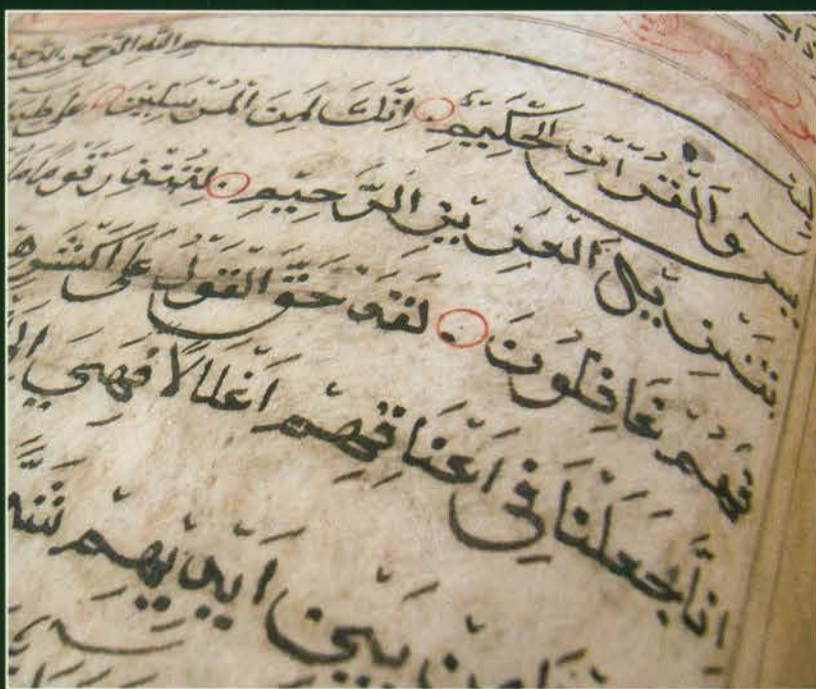 الله الرحمن الرحيم
والقرآن الحكيم إنك لمن المرسلين على
تنزيل العزيز الرحيم لتنذر قوما
فهم غافلون لقد حق القول على أكثرهم
إنا جعلنا في أعناقهم أغلالا فهي
من بين أيديهم